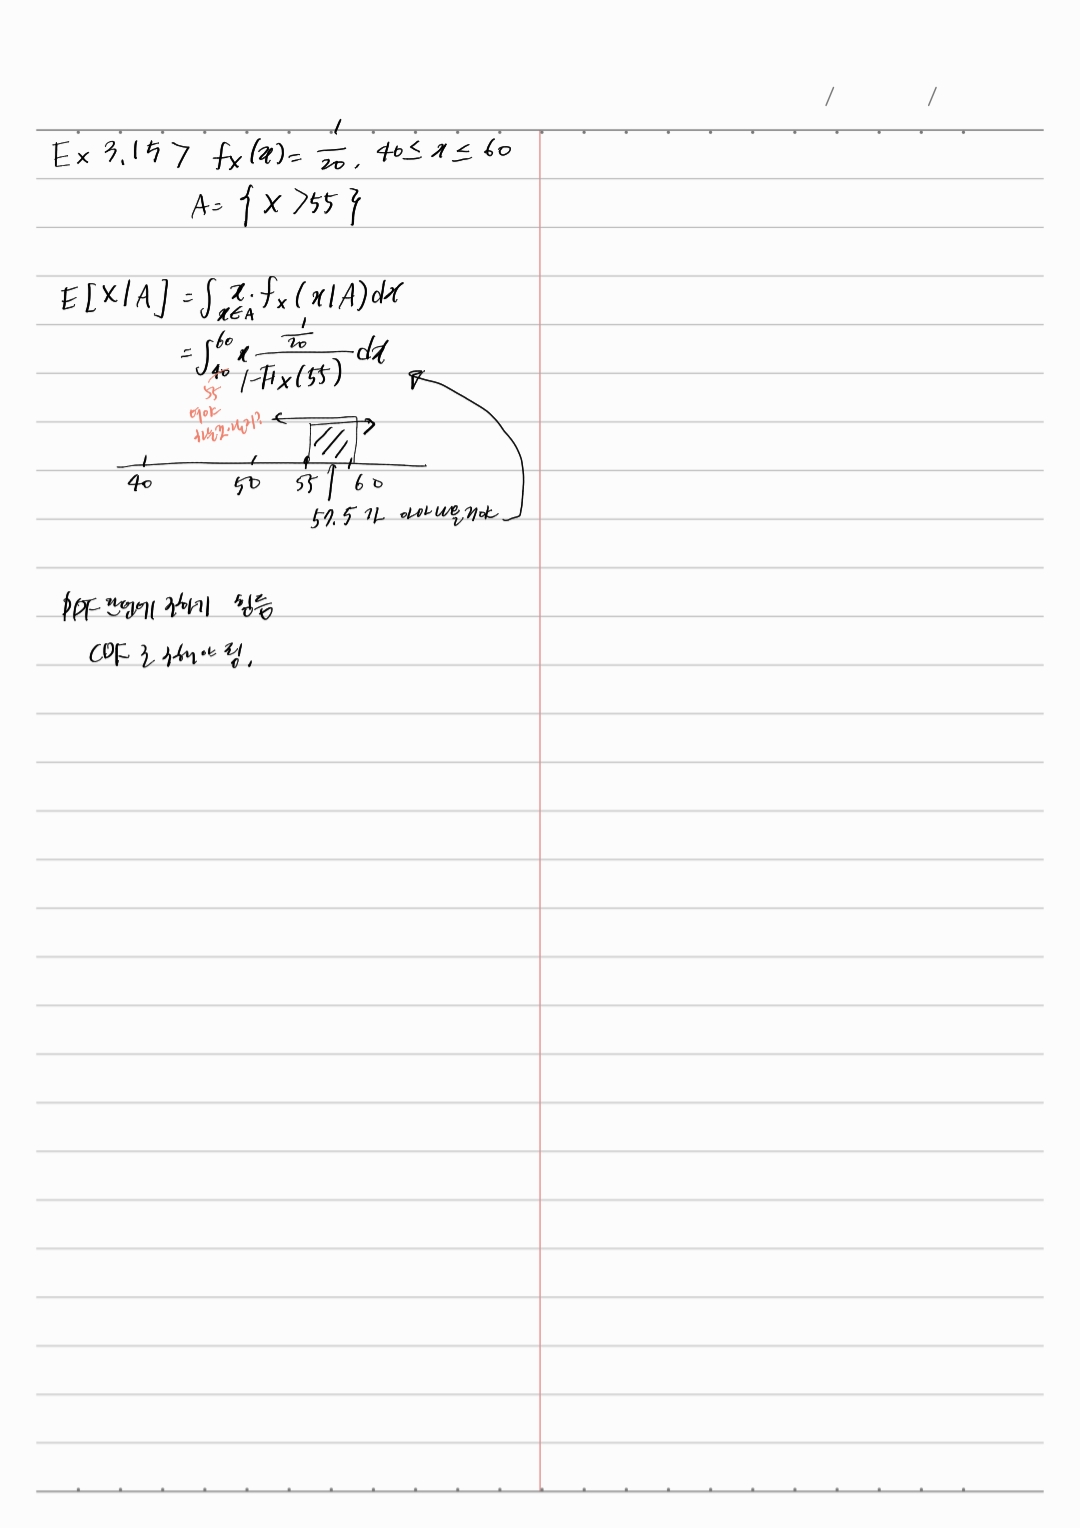 / /
Ex 3.15> fx(x)= 1/20, 40≤ x ≤ 60
A= { X >55 }
E[X|A] = ∫x∈A x·fx(x|A)dx
= ∫40^60 x (1/20)/(1-Fx(55)) dx
55
여야
하는것 아닌가?
40 50 55 60
57.5 가
PDF 구하기 힘듦
CDF로 구해야 됨.